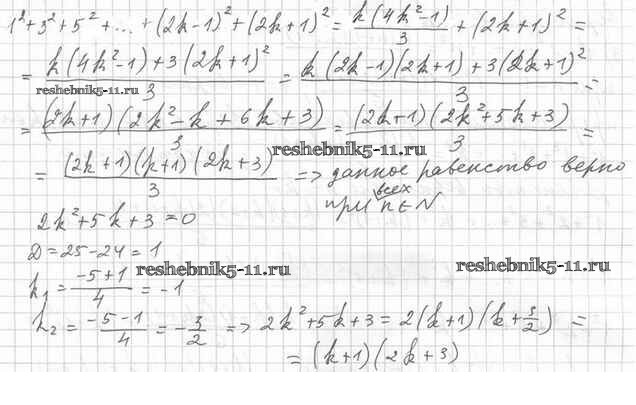 1²+3²+5²+...+(2k-1)²+(2k+1)² = k(4k²-1)/3 + (2k+1)² =
= (k(4k²-1)+3(2k+1)²)/3 = (k(2k-1)(2k+1)+3(2k+1)²)/3 =
reshebnik5-11.ru
= ((2k+1)(2k²-k+6k+3))/3 = ((2k+1)(2k²+5k+3))/3 =
reshebnik5-11.ru
= ((2k+1)(k+1)(2k+3))/3 => данное равенство верно
при всех n∈N
2k²+5k+3=0
D=25-24=1
k₁ = (-5+1)/4 = -1
reshebnik5-11.ru
reshebnik5-11.ru
k₂ = (-5-1)/4 = -3/2 => 2k²+5k+3 = 2(k+1)(k+3/2) =
= (k+1)(2k+3)